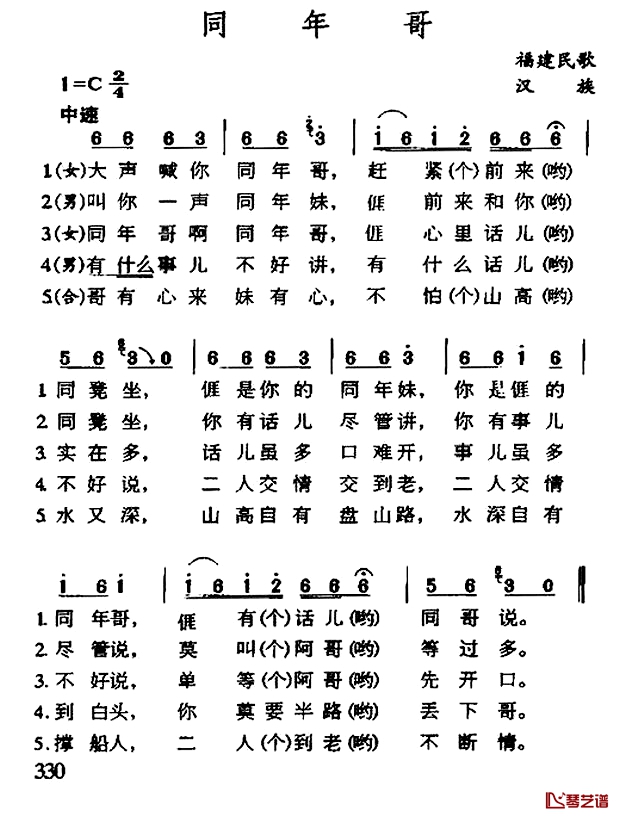 同年哥
福建民歌
1=C 2/4
汉族
中速
6 6 6 3 | 6 6 3 | i 6 i 2 6 6 6 |
1(女)大声喊你 同年哥，赶紧(个)前来(哟)
2(男)叫你一声 同年妹，𠊎前来和你(哟)
3(女)同年哥啊 同年哥，𠊎心里话儿(哟)
4(男)有什么事儿 不好讲，有什么话儿(哟)
5(合)哥有心来 妹有心，不怕(个)山高(哟)
5 6 3 0 | 6 6 6 3 | 6 6 3 | 6 6 i 6 |
1.同凳坐，𠊎是你的 同年妹，你是𠊎的
2.同凳坐，你有话儿 尽管讲，你有事儿
3.实在多，话儿虽多 口难开，事儿虽多
4.不好说，二人交情 交到老，二人交情
5.水又深，山高自有 盘山路，水深自有
i 6 i | i 6 i 2 6 6 6 | 5 6 3 0 ‖
1.同年哥，𠊎有(个)话儿(哟) 同哥说。
2.尽管说，莫叫(个)阿哥(哟) 等过多。
3.不好说，单等(个)阿哥(哟) 先开口。
4.到白头，你莫要半路(哟) 丢下哥。
5.撑船人，二人(个)到老(哟) 不断情。
330
琴艺谱